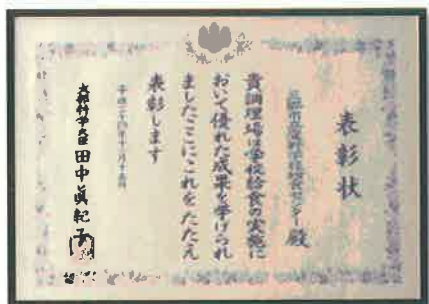 表彰状
学校給食センター 殿
貴調理場は学校給食の実施に
おいて優れた成果を挙げられ
ましたここにこれをたたえ
表彰します
平成二十四年十月
文部科学大臣 田中眞紀子